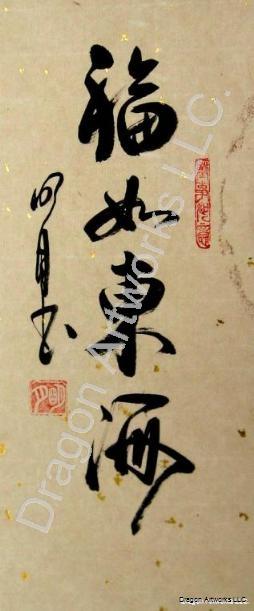 福如東海
明月书
Dragon Artworks LLC.
Dragon Artworks LLC.